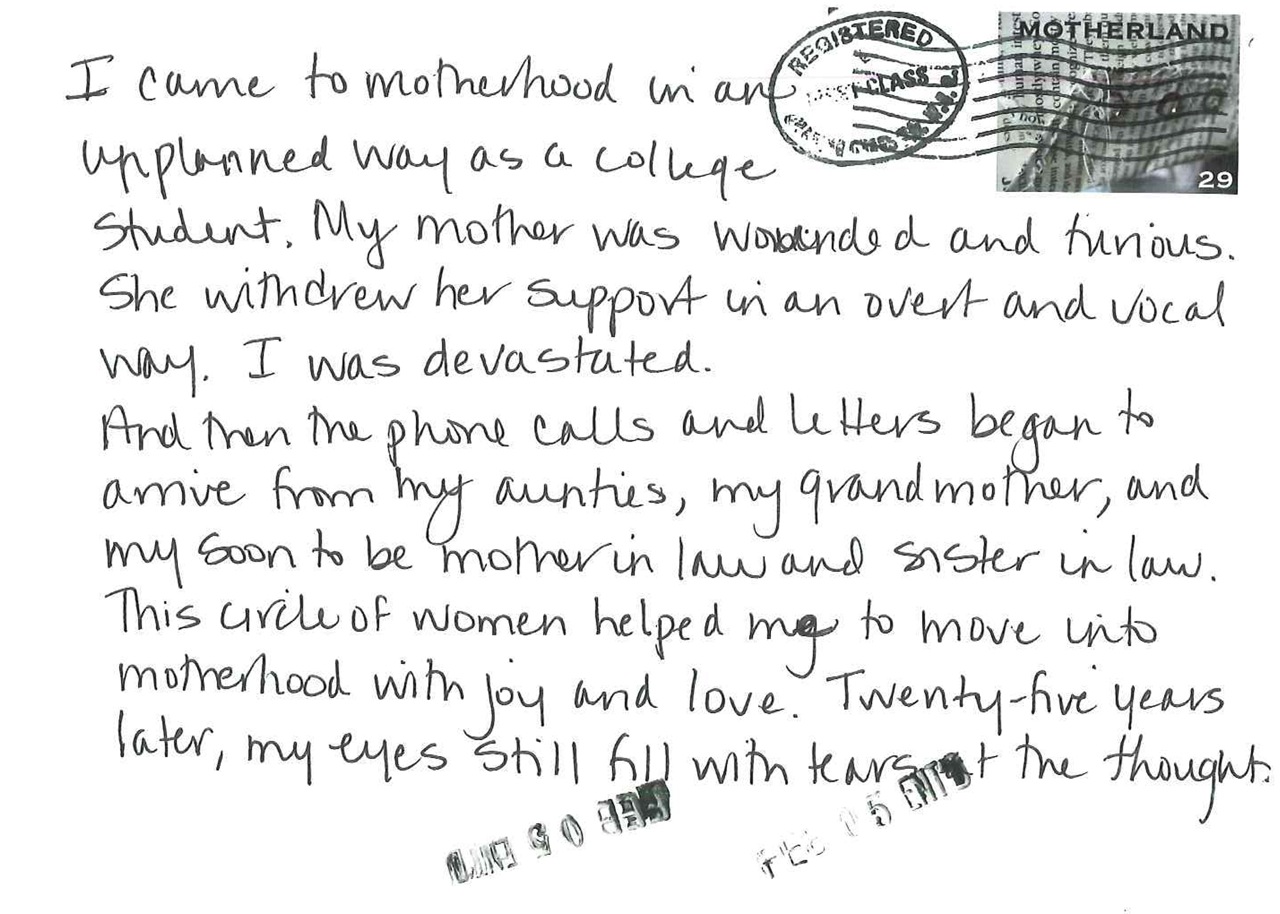 MOTHERLAND
REGISTERED
CLASS
29
I came to motherhood in an
unplanned way as a college
student. My mother was wounded and furious.
She withdrew her support in an overt and vocal
way. I was devastated.
And then the phone calls and letters began to
arrive from my aunties, my grandmother, and
my soon to be mother in law and sister in law.
This circle of women helped me to move into
motherhood with joy and love. Twenty-five years
later, my eyes still fill with tears at the thought.
FEB 05